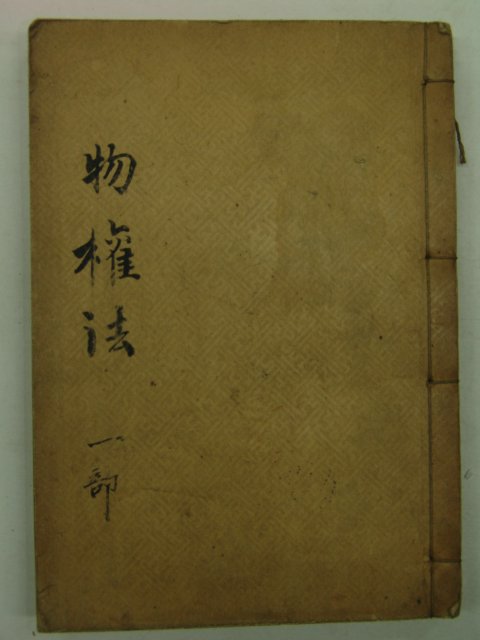 物權法
一部